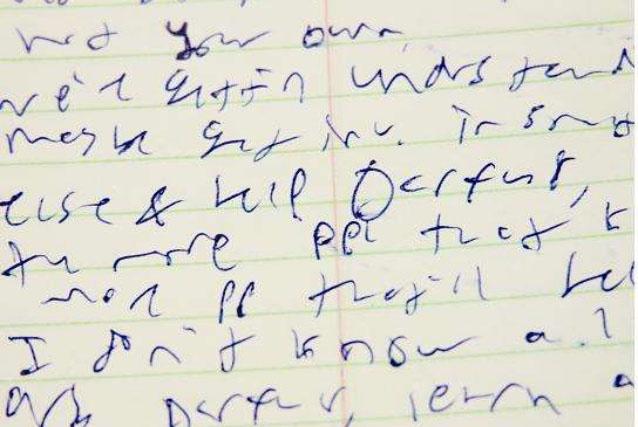 not your own
we'll gettin understand
maybe get inv. in some
else & help Darfur,
the more ppl that k
more pp that'll hel
I don't know a l
Darfur, learn a